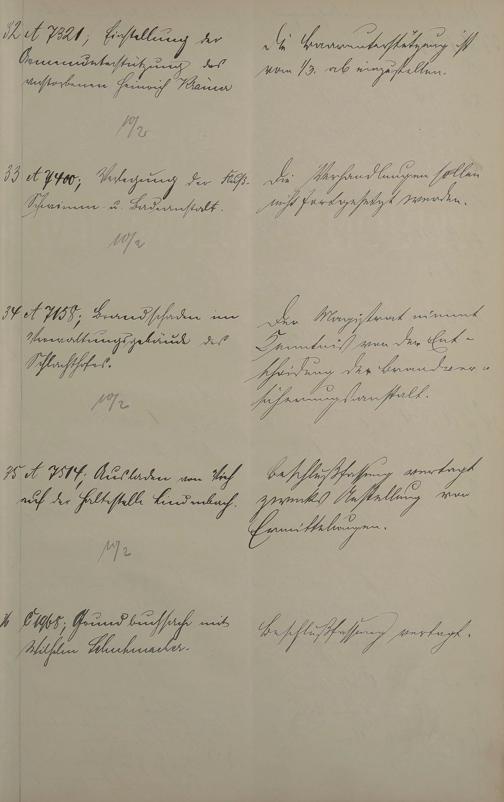 32 A 7321; Einstellung der
Armenunterstützung des
verstorbenen Heinrich Krämer
10/2
Die Barunterstützung ist
vom 1/3. ab einzustellen.
33 A 7400; Verlegung der Fluß-
Schwimm- u. Badeanstalt.
10/2
Die Verhandlungen sollen
nicht fortgesetzt werden.
34 A 7158; Brandschaden im
Verwaltungsgebäude des
Schlachthofes.
10/2
Der Magistrat nimmt
Kenntnis von der Ent-
scheidung der Brandver-
sicherungsanstalt.
35 A 7514; Ausladen von Vieh
auf der Haltestelle Lindenbach.
10/2
Beschlußfassung vertagt
zwecks Anstellung von
Ermittelungen.
36 C 1968; Grundbuchsache mit
Wilhelm Schuhmacher.
Beschlußfassung vertagt.